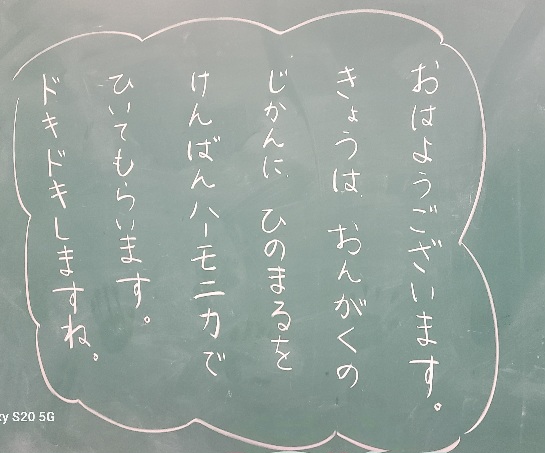 おはようございます。
きょうは おんがくの
じかんに ひのまるを
けんばんハーモニカで
ひいてもらいます。
ドキドキしますね。
xy S20 5G